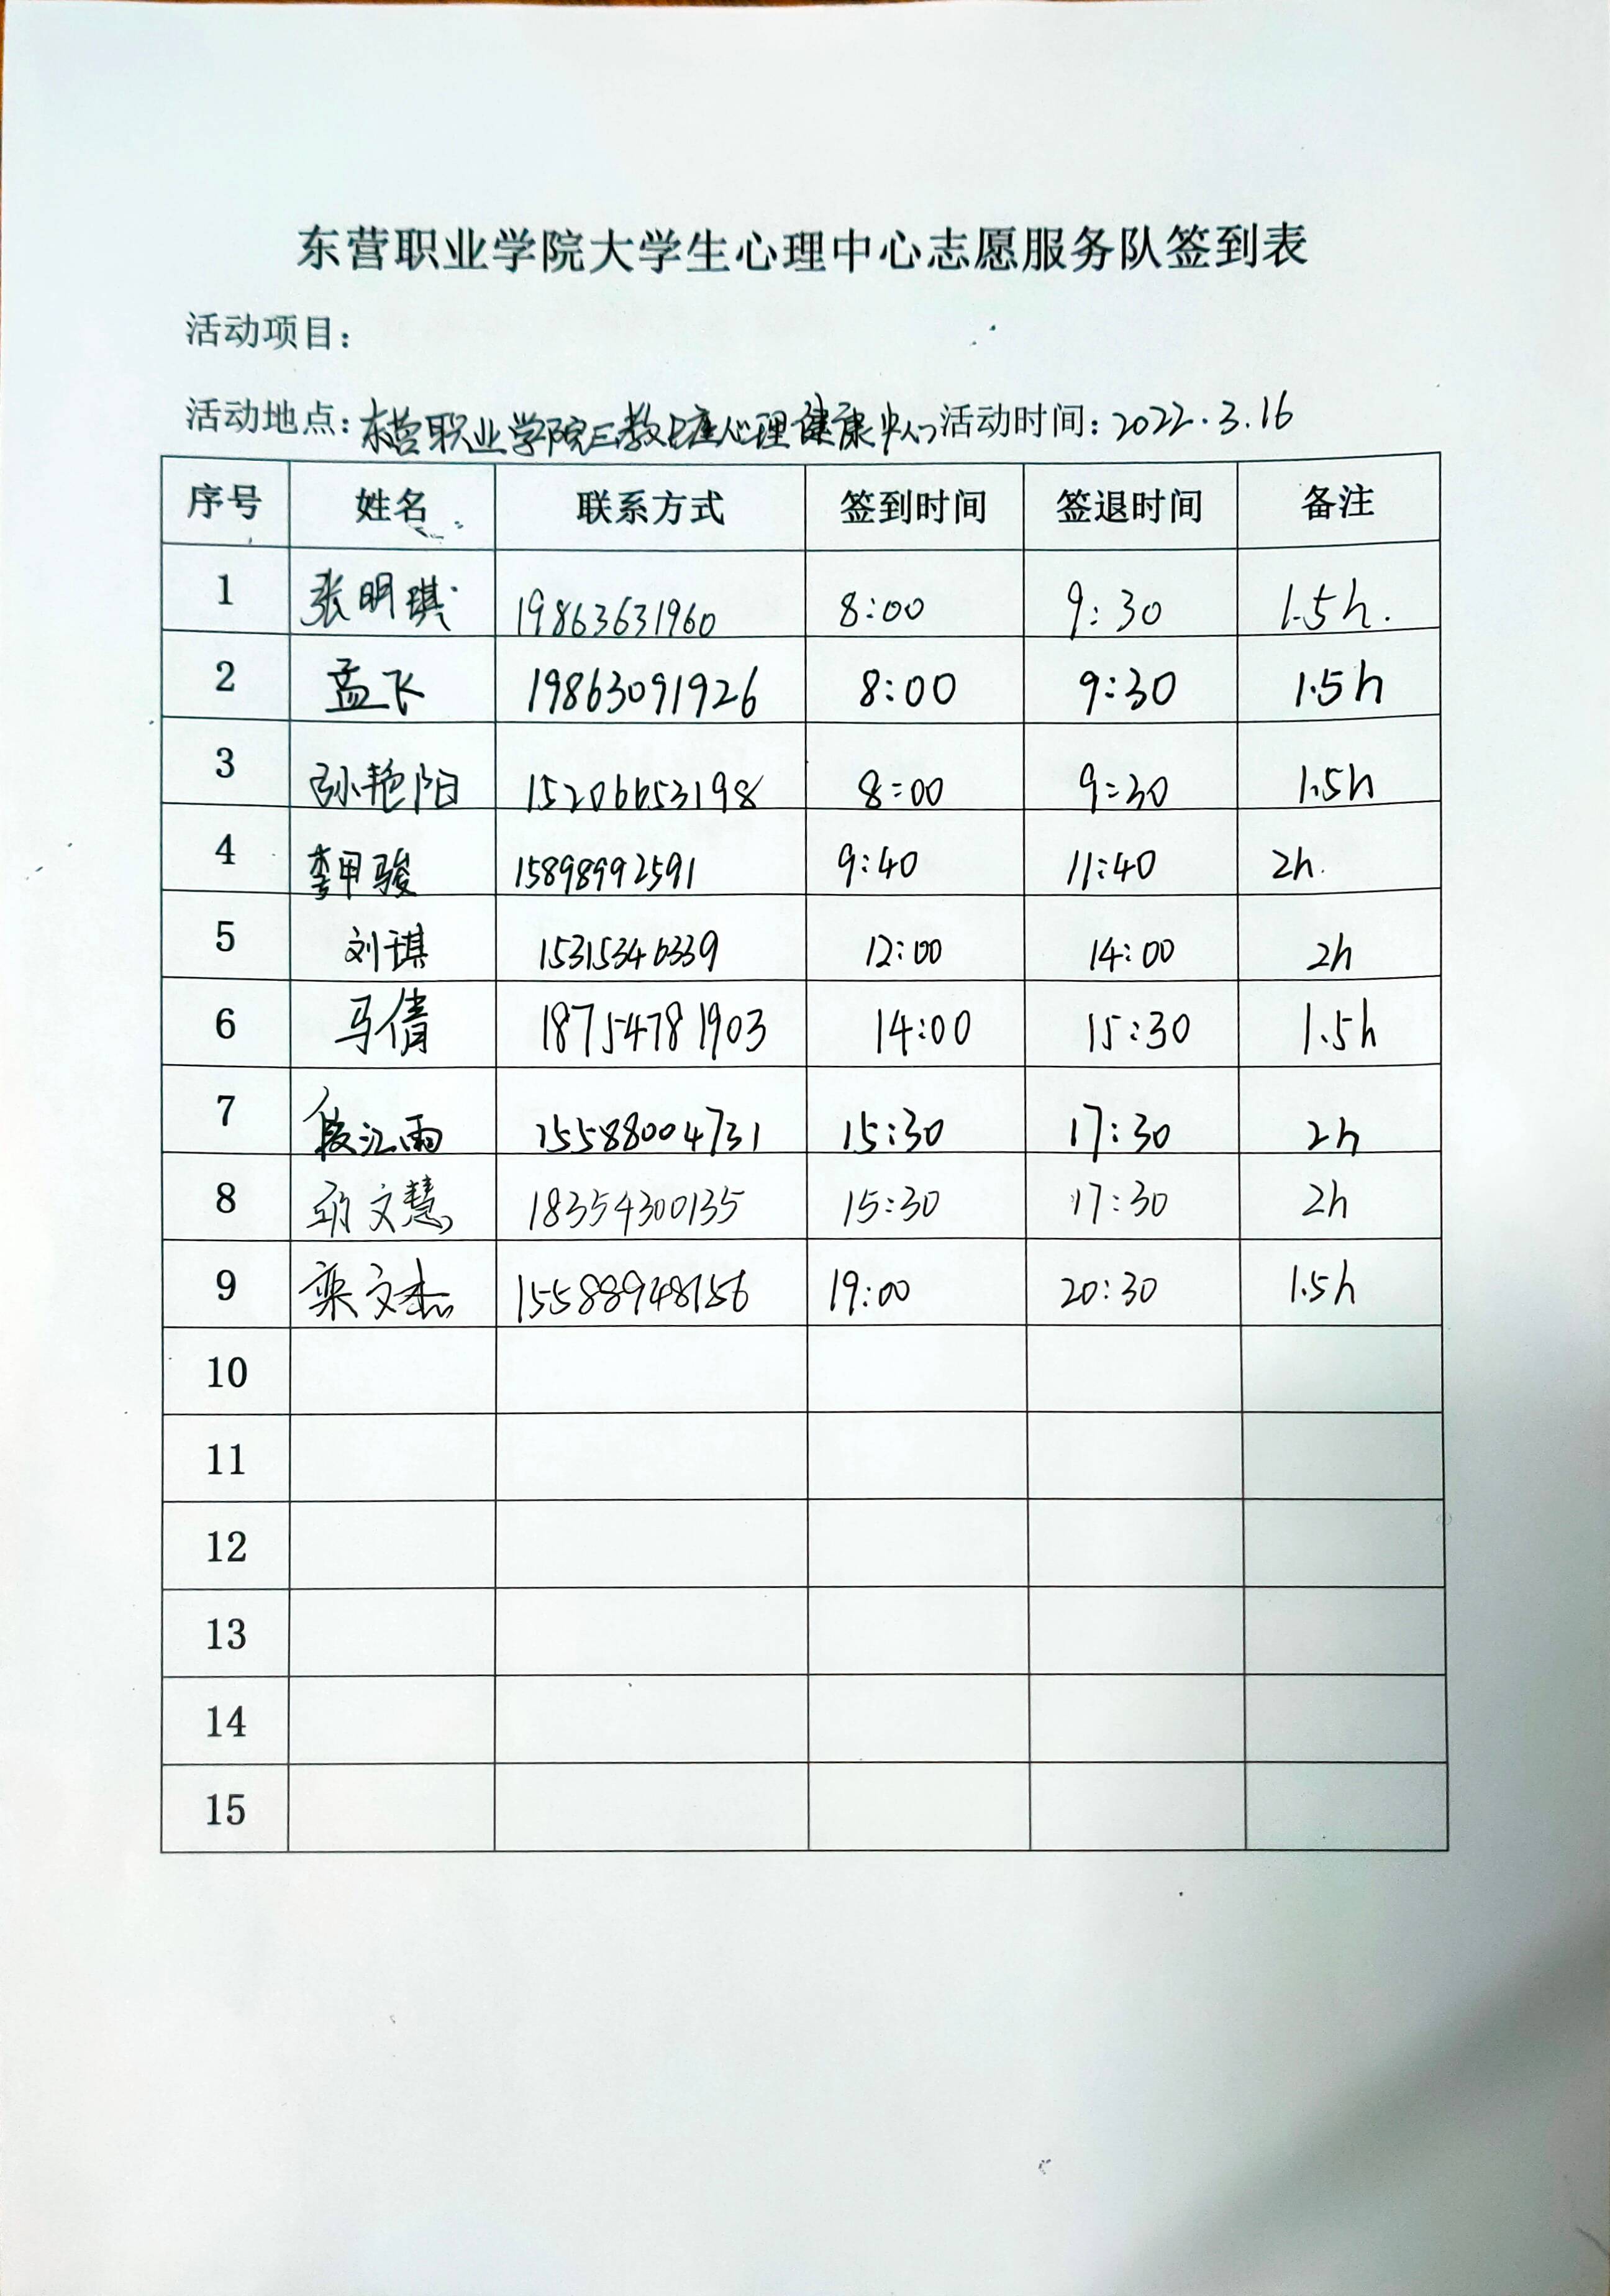 东营职业学院大学生心理中心志愿服务队签到表
活动项目：
活动地点：东营职业学院三教C座心理健康中心 活动时间：2022.3.16
序号 姓名 联系方式 签到时间 签退时间 备注
1 张明琪 19863631960 8:00 9:30 1.5h.
2 孟飞 19863091926 8:00 9:30 1.5h
3 孙艳阳 15206653198 8:00 9:30 1.5h
4 李甲骏 15898992591 9:40 11:40 2h.
5 刘琪 15315346339 12:00 14:00 2h
6 马倩 18754781903 14:00 15:30 1.5h
7 段江雨 15588004731 15:30 17:30 2h
8 文慧 18354300135 15:30 17:30 2h
9 栾文杰 15588948756 19:00 20:30 1.5h
10
11
12
13
14
15